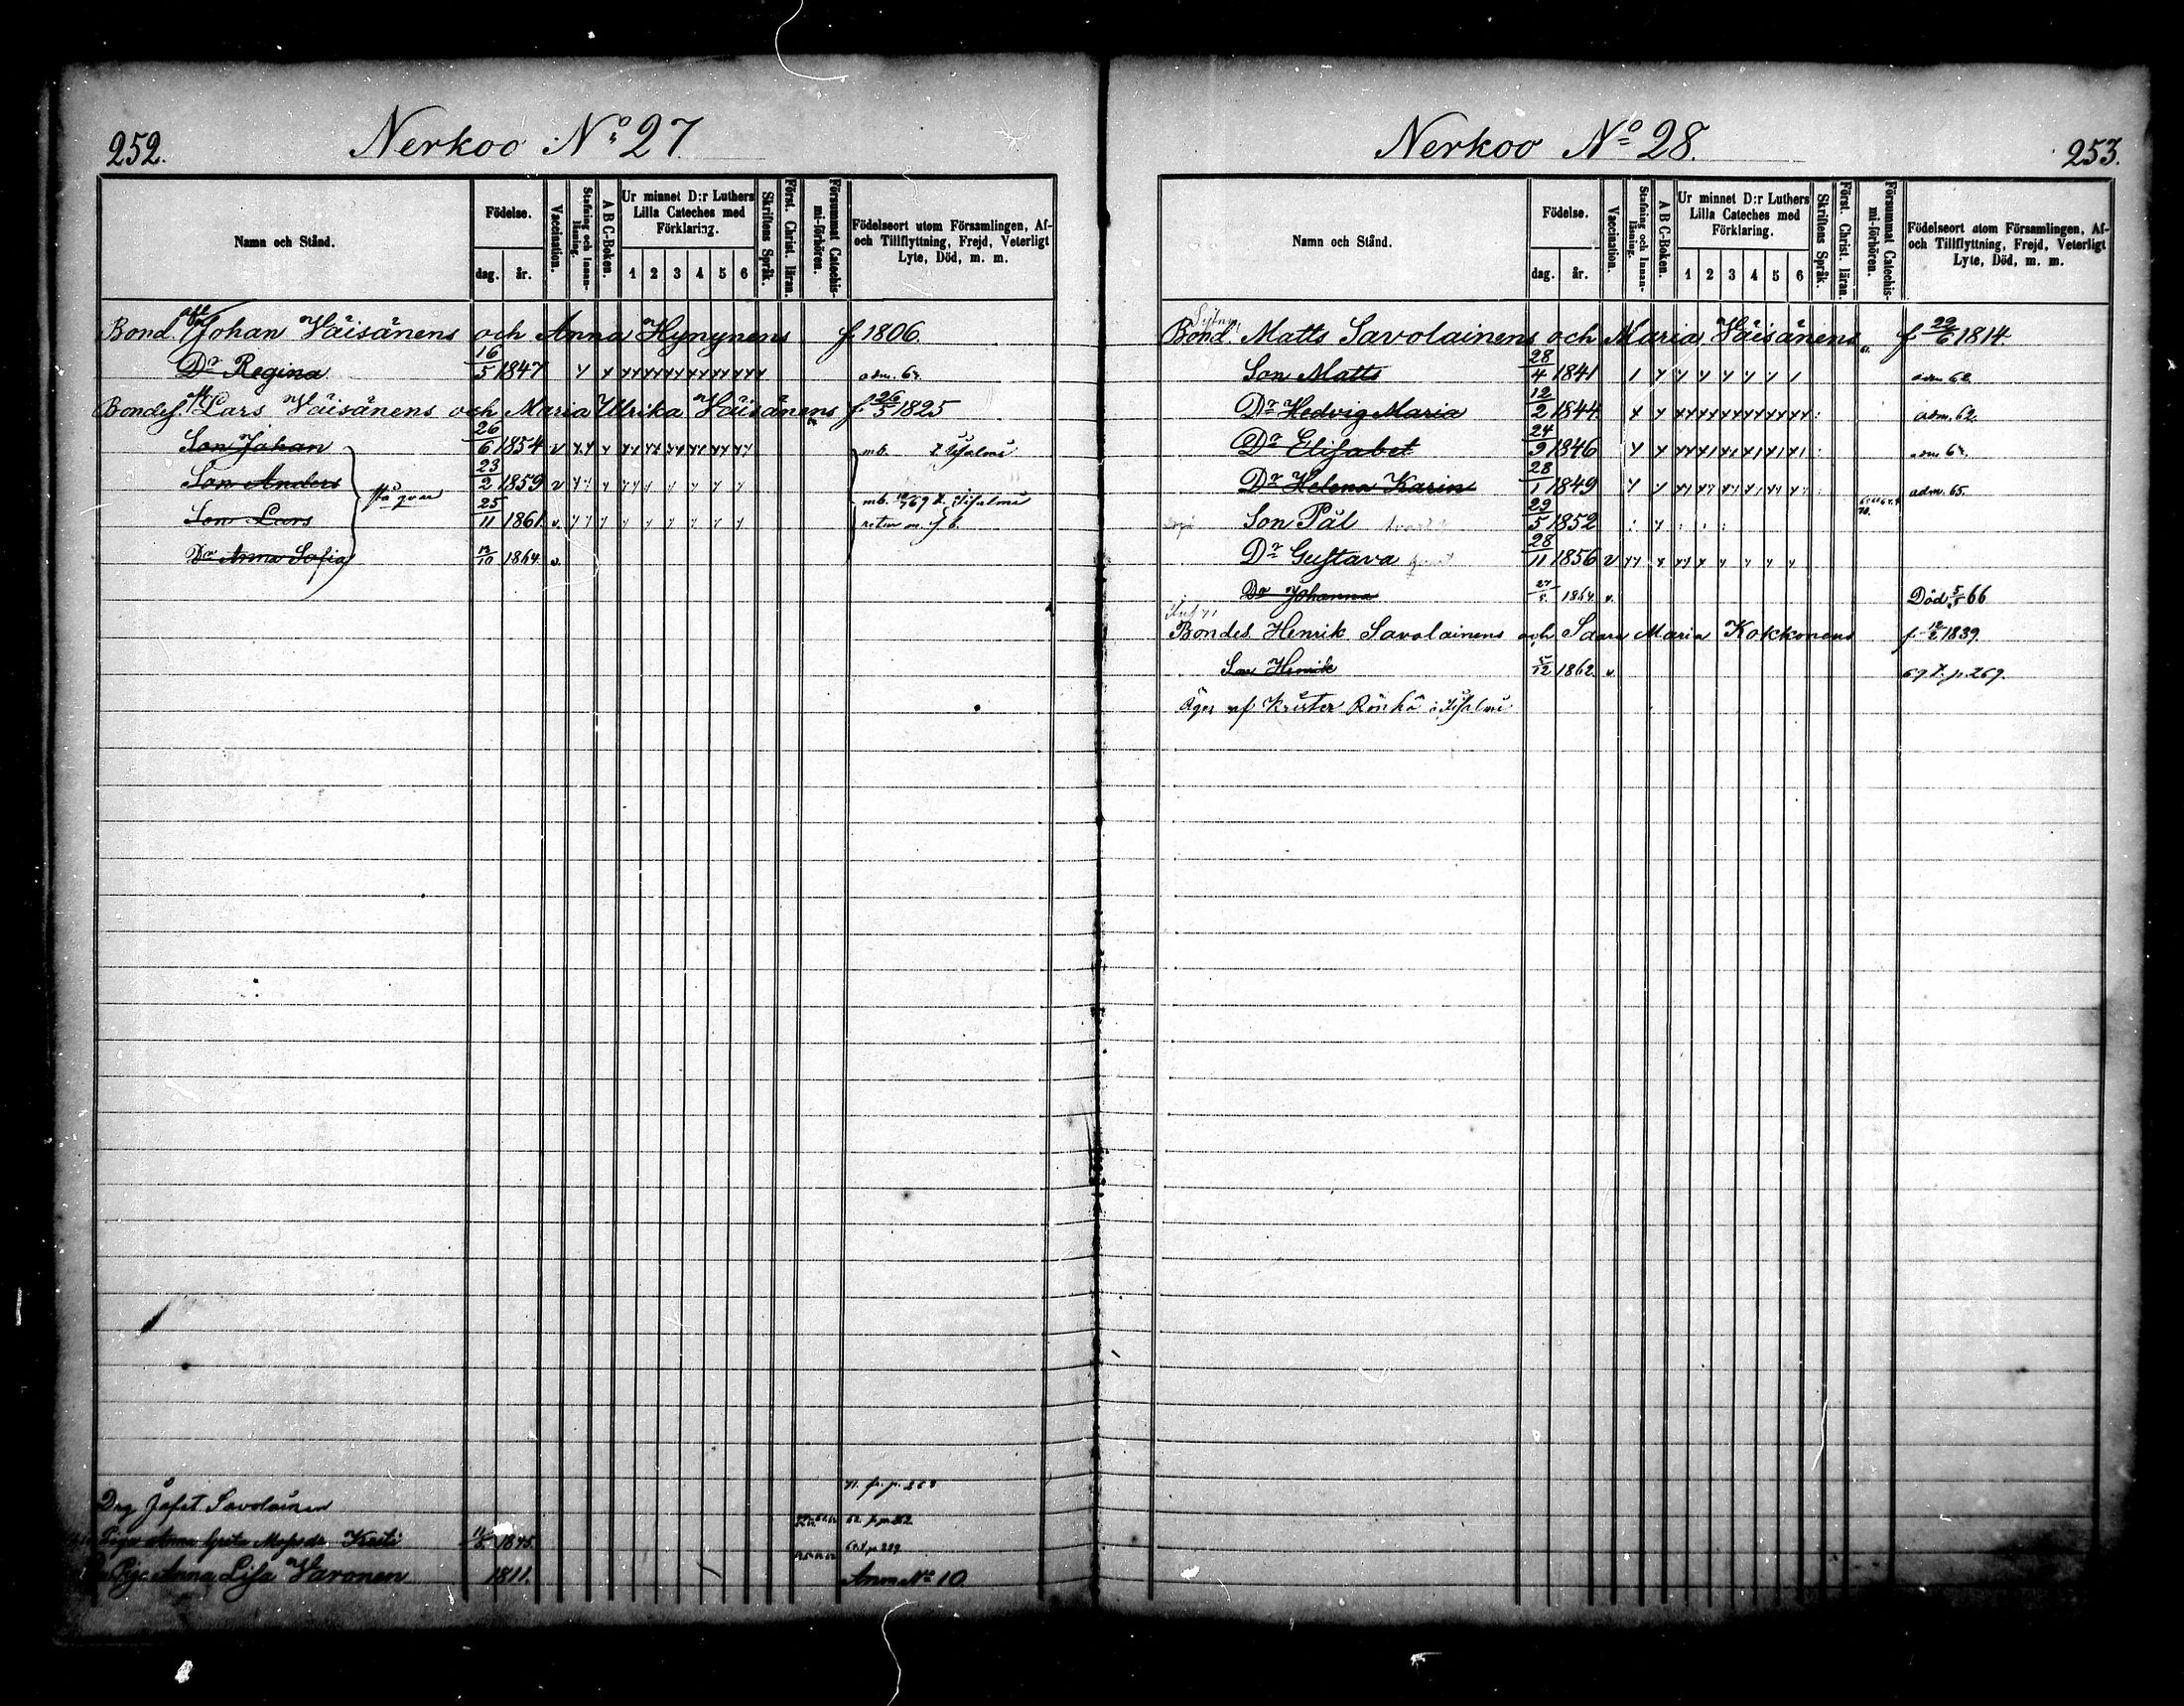 252.
Nerkoo No 27
Namn och Stånd.
Födelse.
dag.
år.
Vaccination.
Stafning och Innan-läsning.
A B C-Boken.
Ur minnet D:r Luthers Lilla Cateches med Förklaring.
1 2 3 4 5 6
Skriftens Språk.
Först. Christ. läran.
Försummat Catechis-mi-förhören.
Födelseort utom Församlingen, Af-
och Tillflyttning, Frejd, Veterligt
Lyte, Död, m. m.
Bond. Johan Väisänens och Anna Hynynens f. 1806.
Dr Regina 16/5 1847 adm.
Bondes. Lars Väisänens och Maria Ulrika Väisänens f. 26/5 1825
Son Johan 26/6 1854 v mb. t. Iisalmi
Son Anders 23/2 1859 v mb. t. Iisalmi
Son Lars 25/11 1861 v.
Dr Anna Sofia 1864 v.
Drg. Jafet Savolainen 71. fr. p.
Piga Anna Greta Kasti 1845.
Pig. Anna Lisa Varonen 1811. No 10
Nerkoo No 28.
253.
Namn och Stånd.
Födelse.
dag.
år.
Vaccination.
Stafning och Innan-läsning.
A B C-Boken.
Ur minnet D:r Luthers Lilla Cateches med Förklaring.
1 2 3 4 5 6
Skriftens Språk.
Först. Christ. läran.
Försummat Catechis-mi-förhören.
Födelseort utom Församlingen, Af-
och Tillflyttning, Frejd, Veterligt
Lyte, Död, m. m.
Bond. Matts Savolainens och Maria Väisänens f. 29/6 1814.
Son Matts 28/4 1841 adm 62
Dr Hedvig Maria 12/2 1844. adm. 62.
Dr Elisabet 24/9 1846
Dr Helena Karin 28/1 1849 adm. 65.
Son Pål 29/5 1852
Dr Gustava 28/11 1856 v
Dr Johanna 1864 v. Död 5/5 66
Bondes. Henrik Savolainens och Saara Maria Kokkonens f. 1839
Son Henrik 5/12 1862 v. 69 t. p. 269.
Äges af Krister Rönkö i Iisalmi